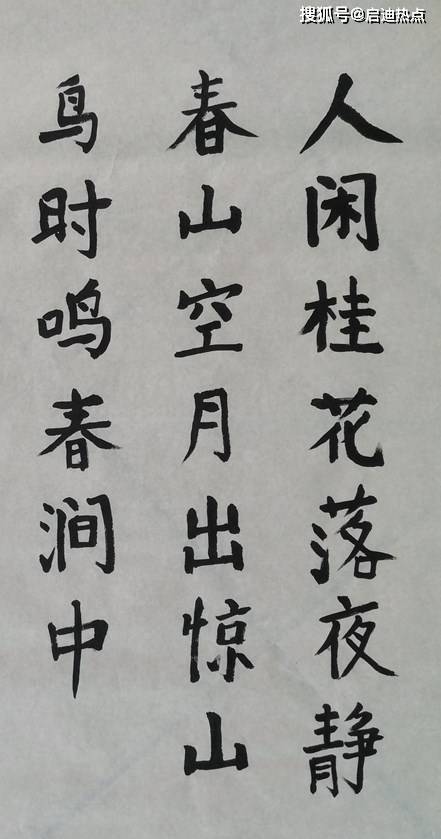 搜狐号@启迪热点
人闲桂花落夜静
春山空月出惊山
鸟时鸣春涧中